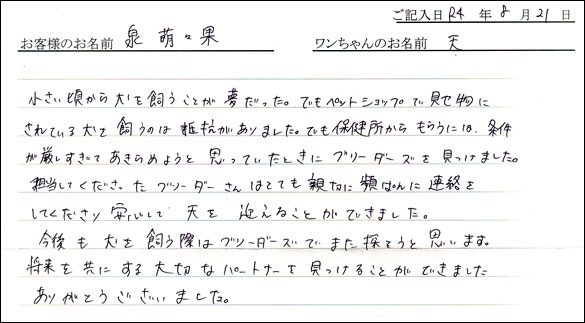 ご記入日 R4 年 8 月 21 日
お客様のお名前 泉 萌々果 ワンちゃんのお名前 天
小さい頃から犬を飼うことが夢だった。でもペットショップで見せ物に
されている犬を飼うのは抵抗がありました。でも保健所からもらうには、条件
が厳しすぎてあきらめようと思っていたときにブリーダーズを見つけました。
担当してくださった ブリーダーさんはとても親切に頻ぱんに連絡を
してくださり 安心して 天を 迎えることができました。
今後も 犬を飼う際はブリーダーズでまた探そうと思います。
将来を共にする大切なパートナーを見つけることができました
ありがとうございました。